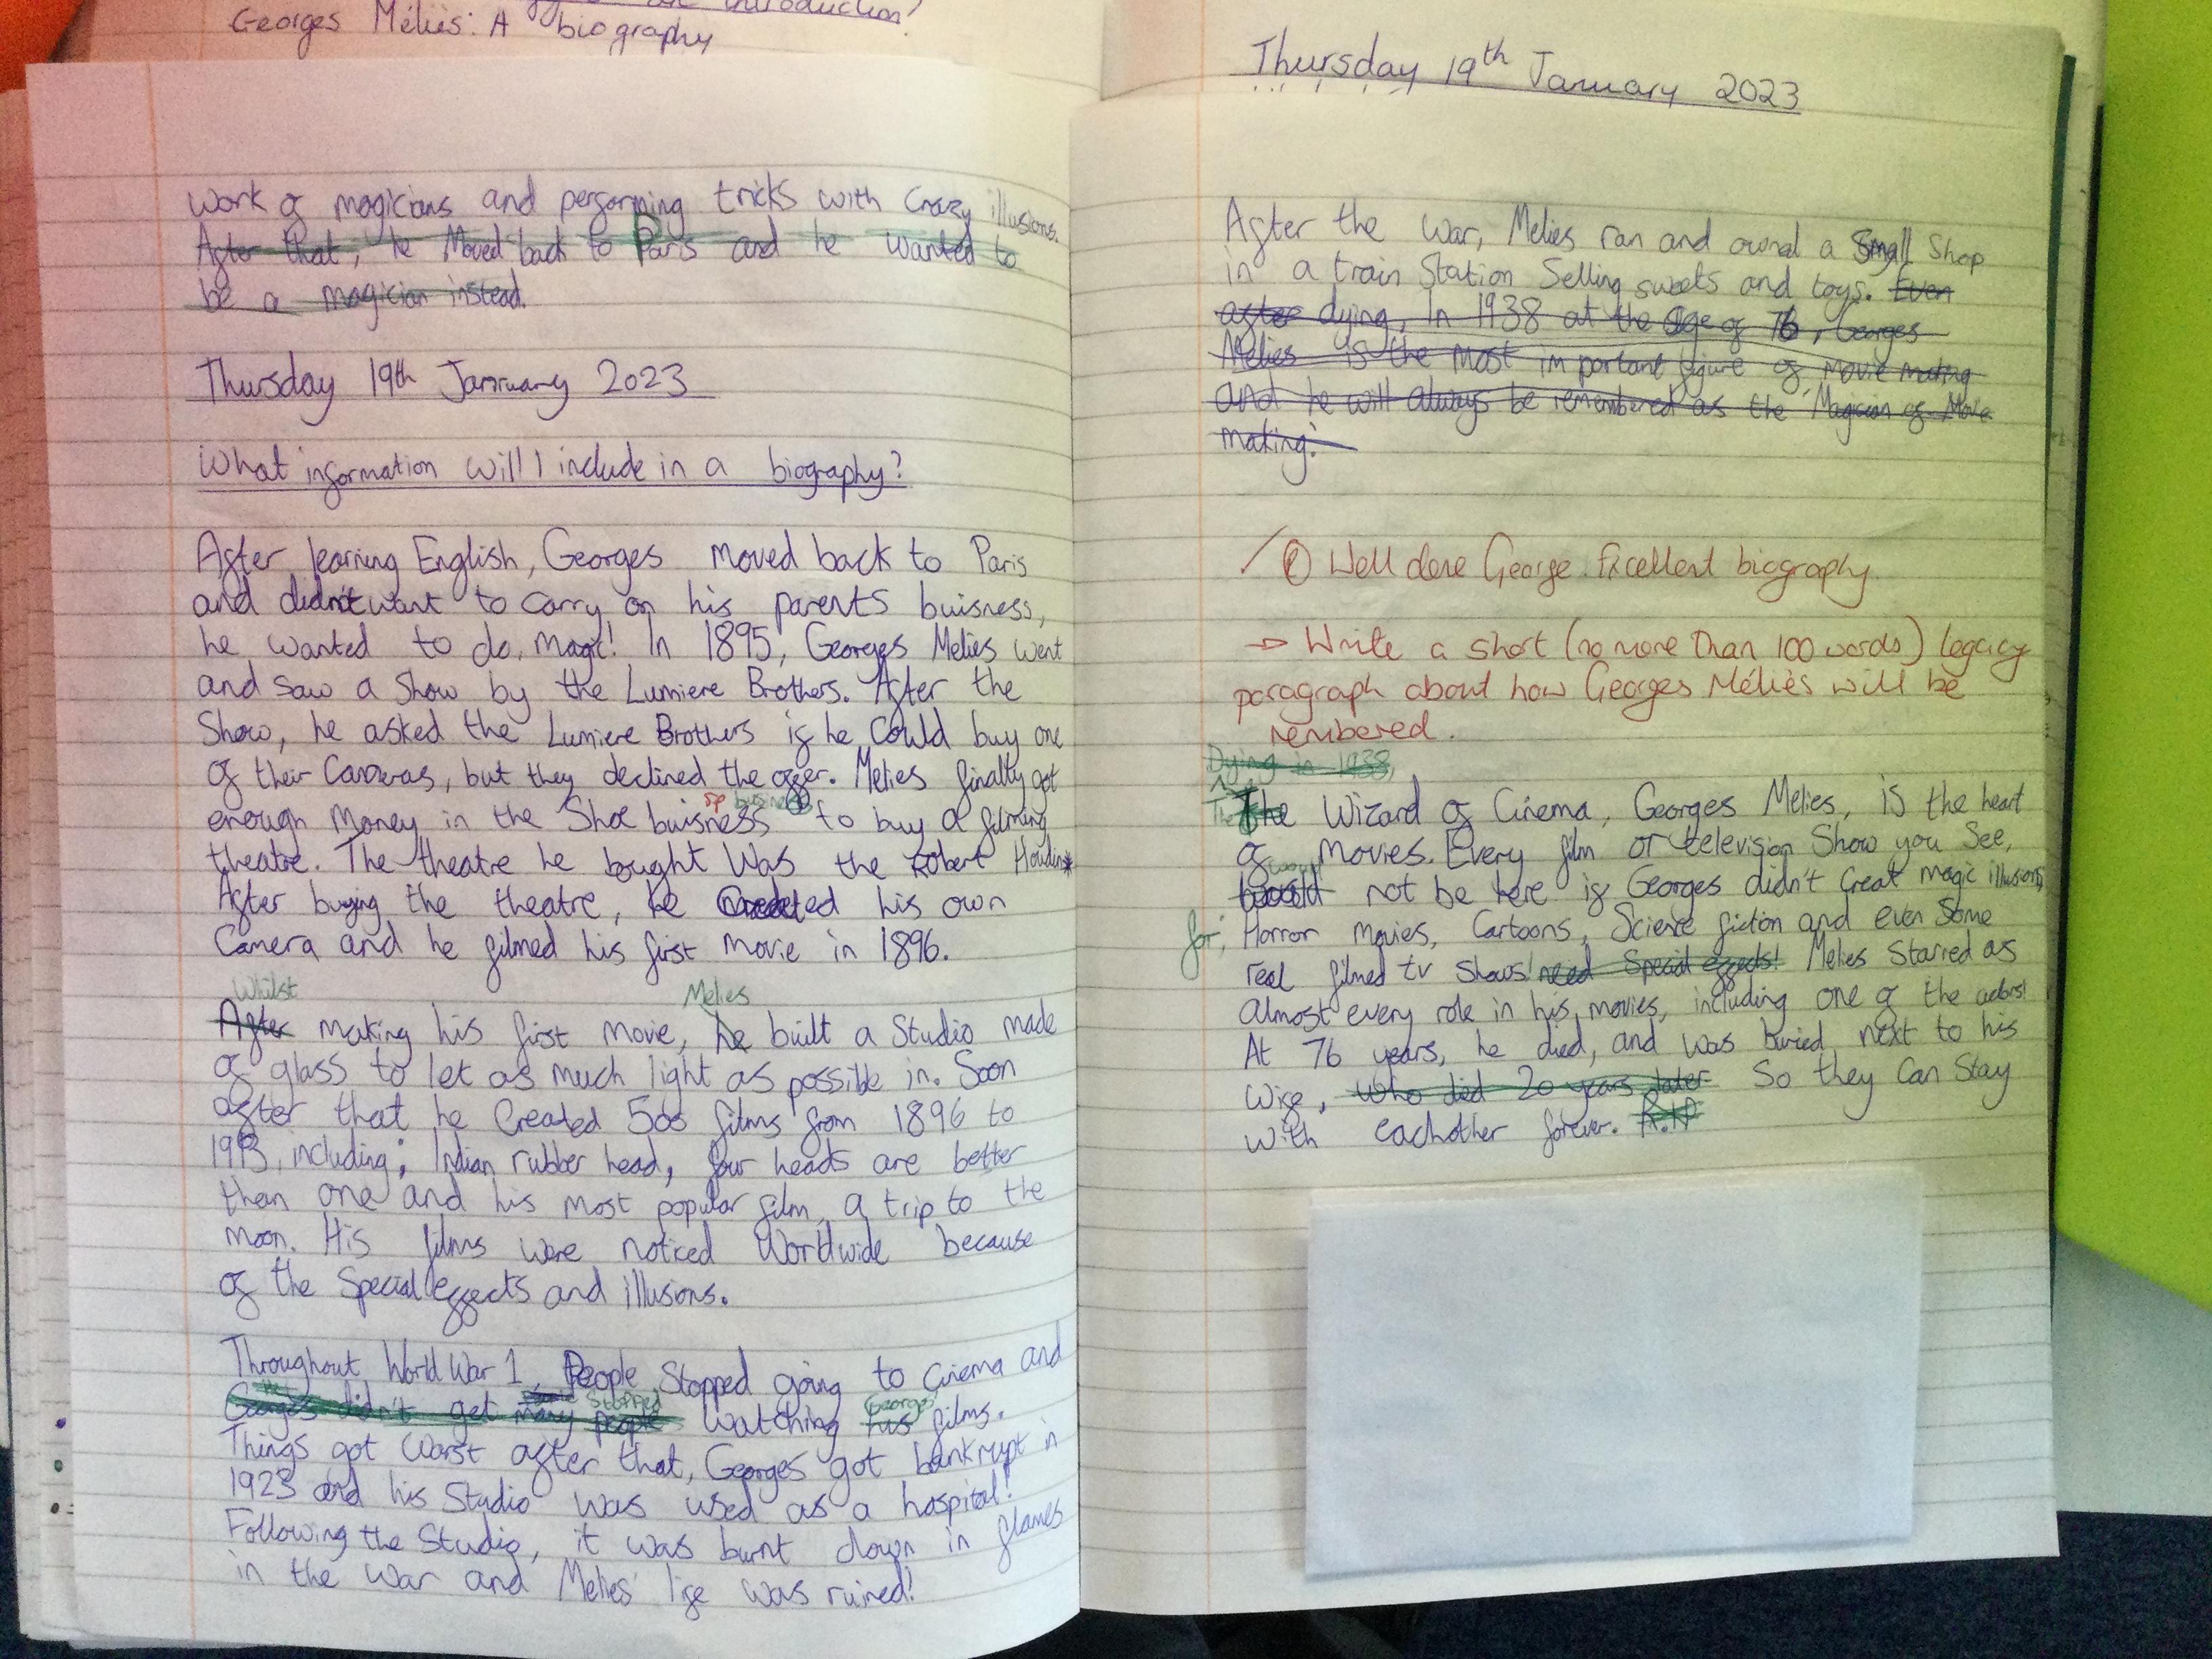 an introduction!
Georges Méliès: A biography
work of magicians and performing tricks with Crazy illusions.
After that, he Moved back to Paris and he wanted to
be a magician instead.
Thursday 19th January 2023
What information will I include in a biography?
After learning English, Georges moved back to Paris
and didn't want to carry on his parents buisness,
he wanted to do, magic! In 1895, Georges Melies went
and saw a Show by the Lumiere Brothers. After the
Show, he asked the Lumiere Brothers if he Could buy one
of their Cameras, but they declined the offer. Melies finally got
sp business
enough money in the Shoe buisness to buy a filming
theatre. The theatre he bought Was the Robert Houdin*
After buying the theatre, he Created his own
Camera and he filmed his first movie in 1896.
Whilst Melies
After making his first movie, he built a Studio made
of glass to let as much light as possible in. Soon
after that he Created 500 films from 1896 to
1913, including; Indian rubber head, four heads are better
than one and his most popular film, a trip to the
moon. His films were noticed Worldwide because
of the Special effects and illusions.
Throughout World War 1, People Stopped going to Cinema and
Stopped Georges'
Georges didn't get many people watching his films.
Things got Worst after that, Georges got bankrupt in
1923 and his Studio was used as a hospital!
Following the Studio, it was burnt down in flames
in the war and Melies' life was ruined!
Thursday 19th January 2023
After the War, Melies ran and owned a Small Shop
in a train Station Selling sweets and toys. Even
after dying, In 1938 at the age of 76, Georges
Melies is the most important figure of movie making
and he will always be remembered as the 'Magician of Movie
making.'
Well done George. Excellent biography
→ Write a short (no more than 100 words) legacy
paragraph about how Georges Méliès will be
rembered.
Dying in 1938,
The Wizard of Cinema, Georges Melies, is the heart
of movies. Every film or television Show you See,
would not be here if Georges didn't Creat magic illusions
for; Horror movies, Cartoons, Science fiction and even Some
real filmed tv Shows! need Special effects! Melies Starred as
almost every role in his movies, including one of the actors!
At 76 years, he died, and was buried next to his
Wife, who died 20 years later So they Can Stay
with eachother forever. R.I.P